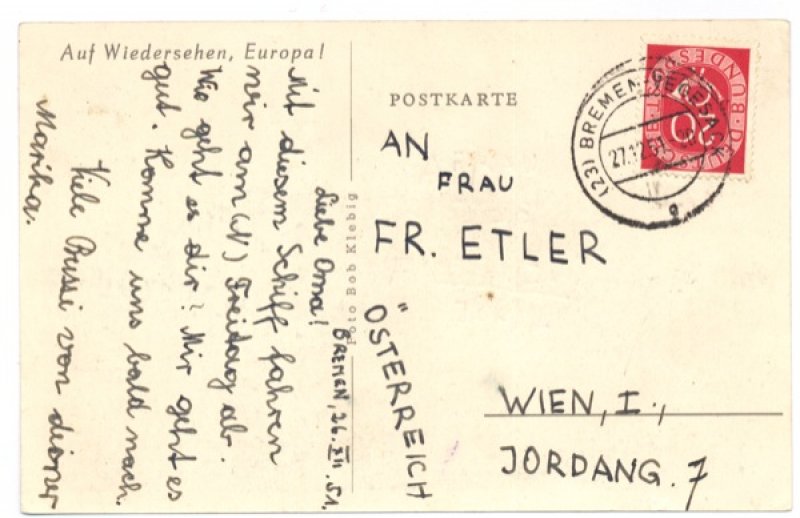 Auf Wiedersehen, Europa!
BREMEN, 26. XII. 51.
Liebe Oma!
Mit diesem Schiff fahren
wir am (N) Freitag ab.
Wie geht es dir? Mir geht es
gut. Komme uns bald nach.
Viele Bussi von deiner
Marika.
Foto Bob Klebig
POSTKARTE
AN
FRAU
FR. ETLER
ÖSTERREICH
WIEN, I.,
JORDANG. 7
(23) BREMEN-VEGESACK
27.12.51
DEUTSCHE BUNDESPOST
20